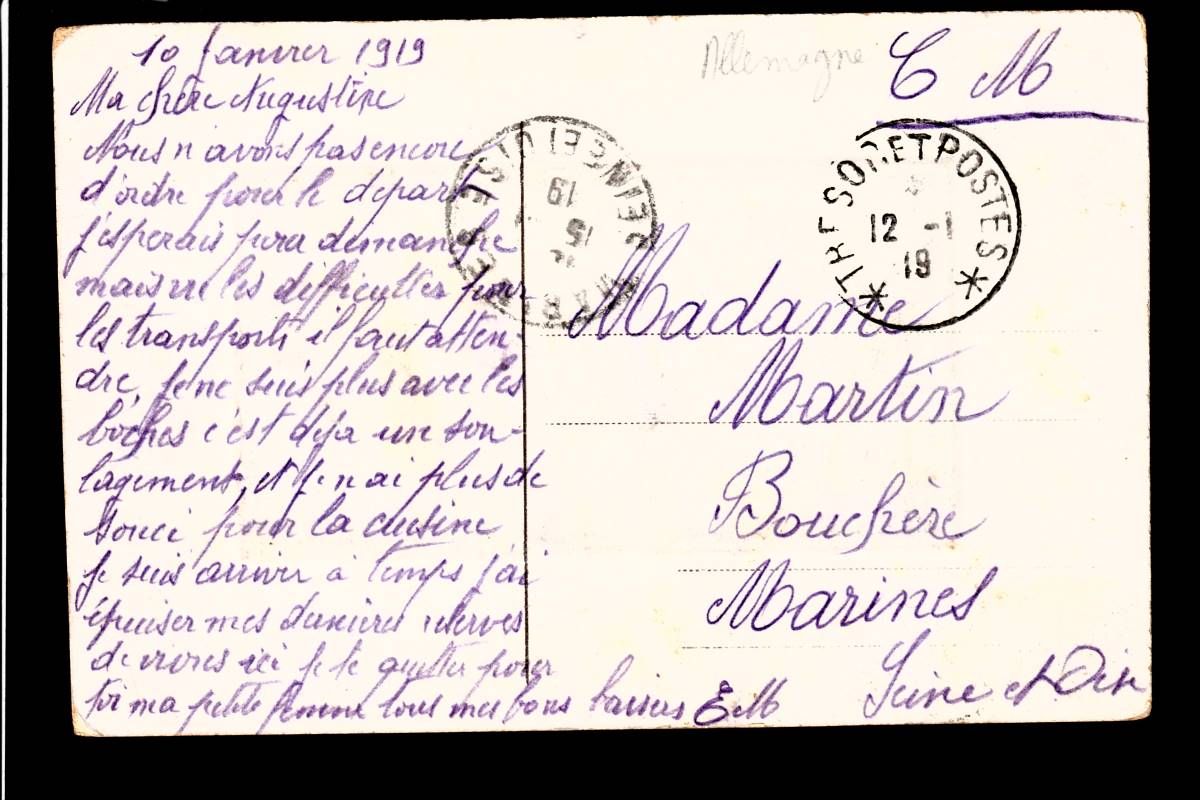 10 Janvier 1919
Ma chère Augustine
Nous n avons pas encore
d'ordre pour le départ
j'esperais pour dimanche
mais vu les difficultes pour
les transports il faut atten-
dre, je ne suis plus avec les
boches c'est déja un sou-
lagement, et je n ai plus de
souci pour la cuisine
je suis arriver à temps j'ai
épuiser mes dernieres réserves
de vivres ici je te quitte pour
toi ma petite femme tous mes bons baisers EM
Allemagne
C M
TRESOR ET POSTES
12 -1
19
SEINE ET OISE
15
19
Madame
Martin
Bouchère
Marines
Seine et Oise